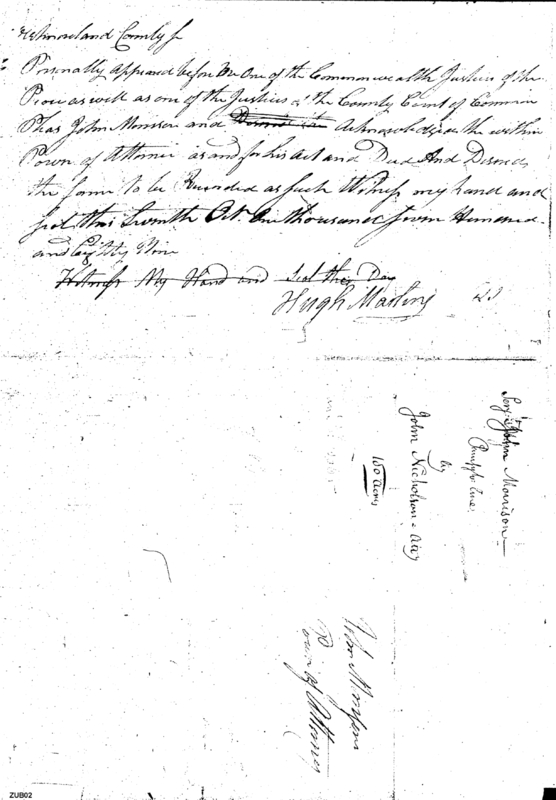 Westmoreland County ss
Personally Appeared before Me One of the Commonwealth Justices of the
Peace as well as one of the Justices of the County Court of Common
Pleas John Morrison and Acknowledged the within
Power of Attorney as and for his Act and Deed And Desired
the same to be Recorded as such Witness my hand and
seal this Seventh Oct One thousand seven Hundred
and Eighty Nine
Witness My Hand and Seal this Day
Hugh Martin LS
Serjt John Morrison
by
John Nicholson Atty
150 acres
John Morrison
To
Power of Attorney
ZUB02